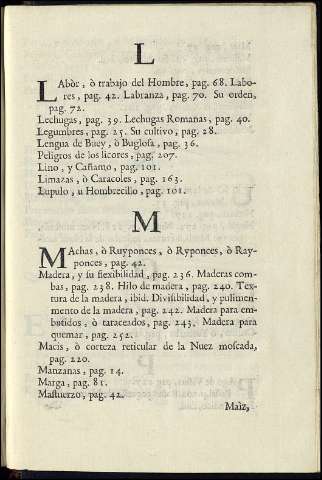 L
LAbòr, ò trabajo del Hombre, pag. 68. Labo-
res, pag. 42. Labranza, pag. 70. Su orden,
pag. 72.
Lechugas, pag. 39. Lechugas Romanas, pag. 40.
Legumbres, pag. 25. Su cultivo, pag. 28.
Lengua de Buey, ò Buglosa, pag. 36.
Peligros de los licores, pag. 207.
Lino, y Cañamo, pag. 101.
Limazas, ò Caracoles, pag. 163.
Lupulo, u Hombrecillo, pag. 101.
M
MAchas, ò Ruyponces, ò Ryponces, ò Ray-
ponces, pag. 42.
Madera, y su flexibilidad, pag. 236. Maderas com-
bas, pag. 238. Hilo de madera, pag. 240. Tex-
tura de la madera, ibid. Divisibilidad, y pulimen-
mento de la madera, pag. 242. Madera para em-
butidos, ò taraceados, pag. 243. Madera para
quemar, pag. 252.
Macis, ò corteza reticular de la Nuez moscada,
pag. 220.
Manzanas, pag. 14.
Marga, pag. 81.
Mastuerzo, pag. 42.
Maìz,